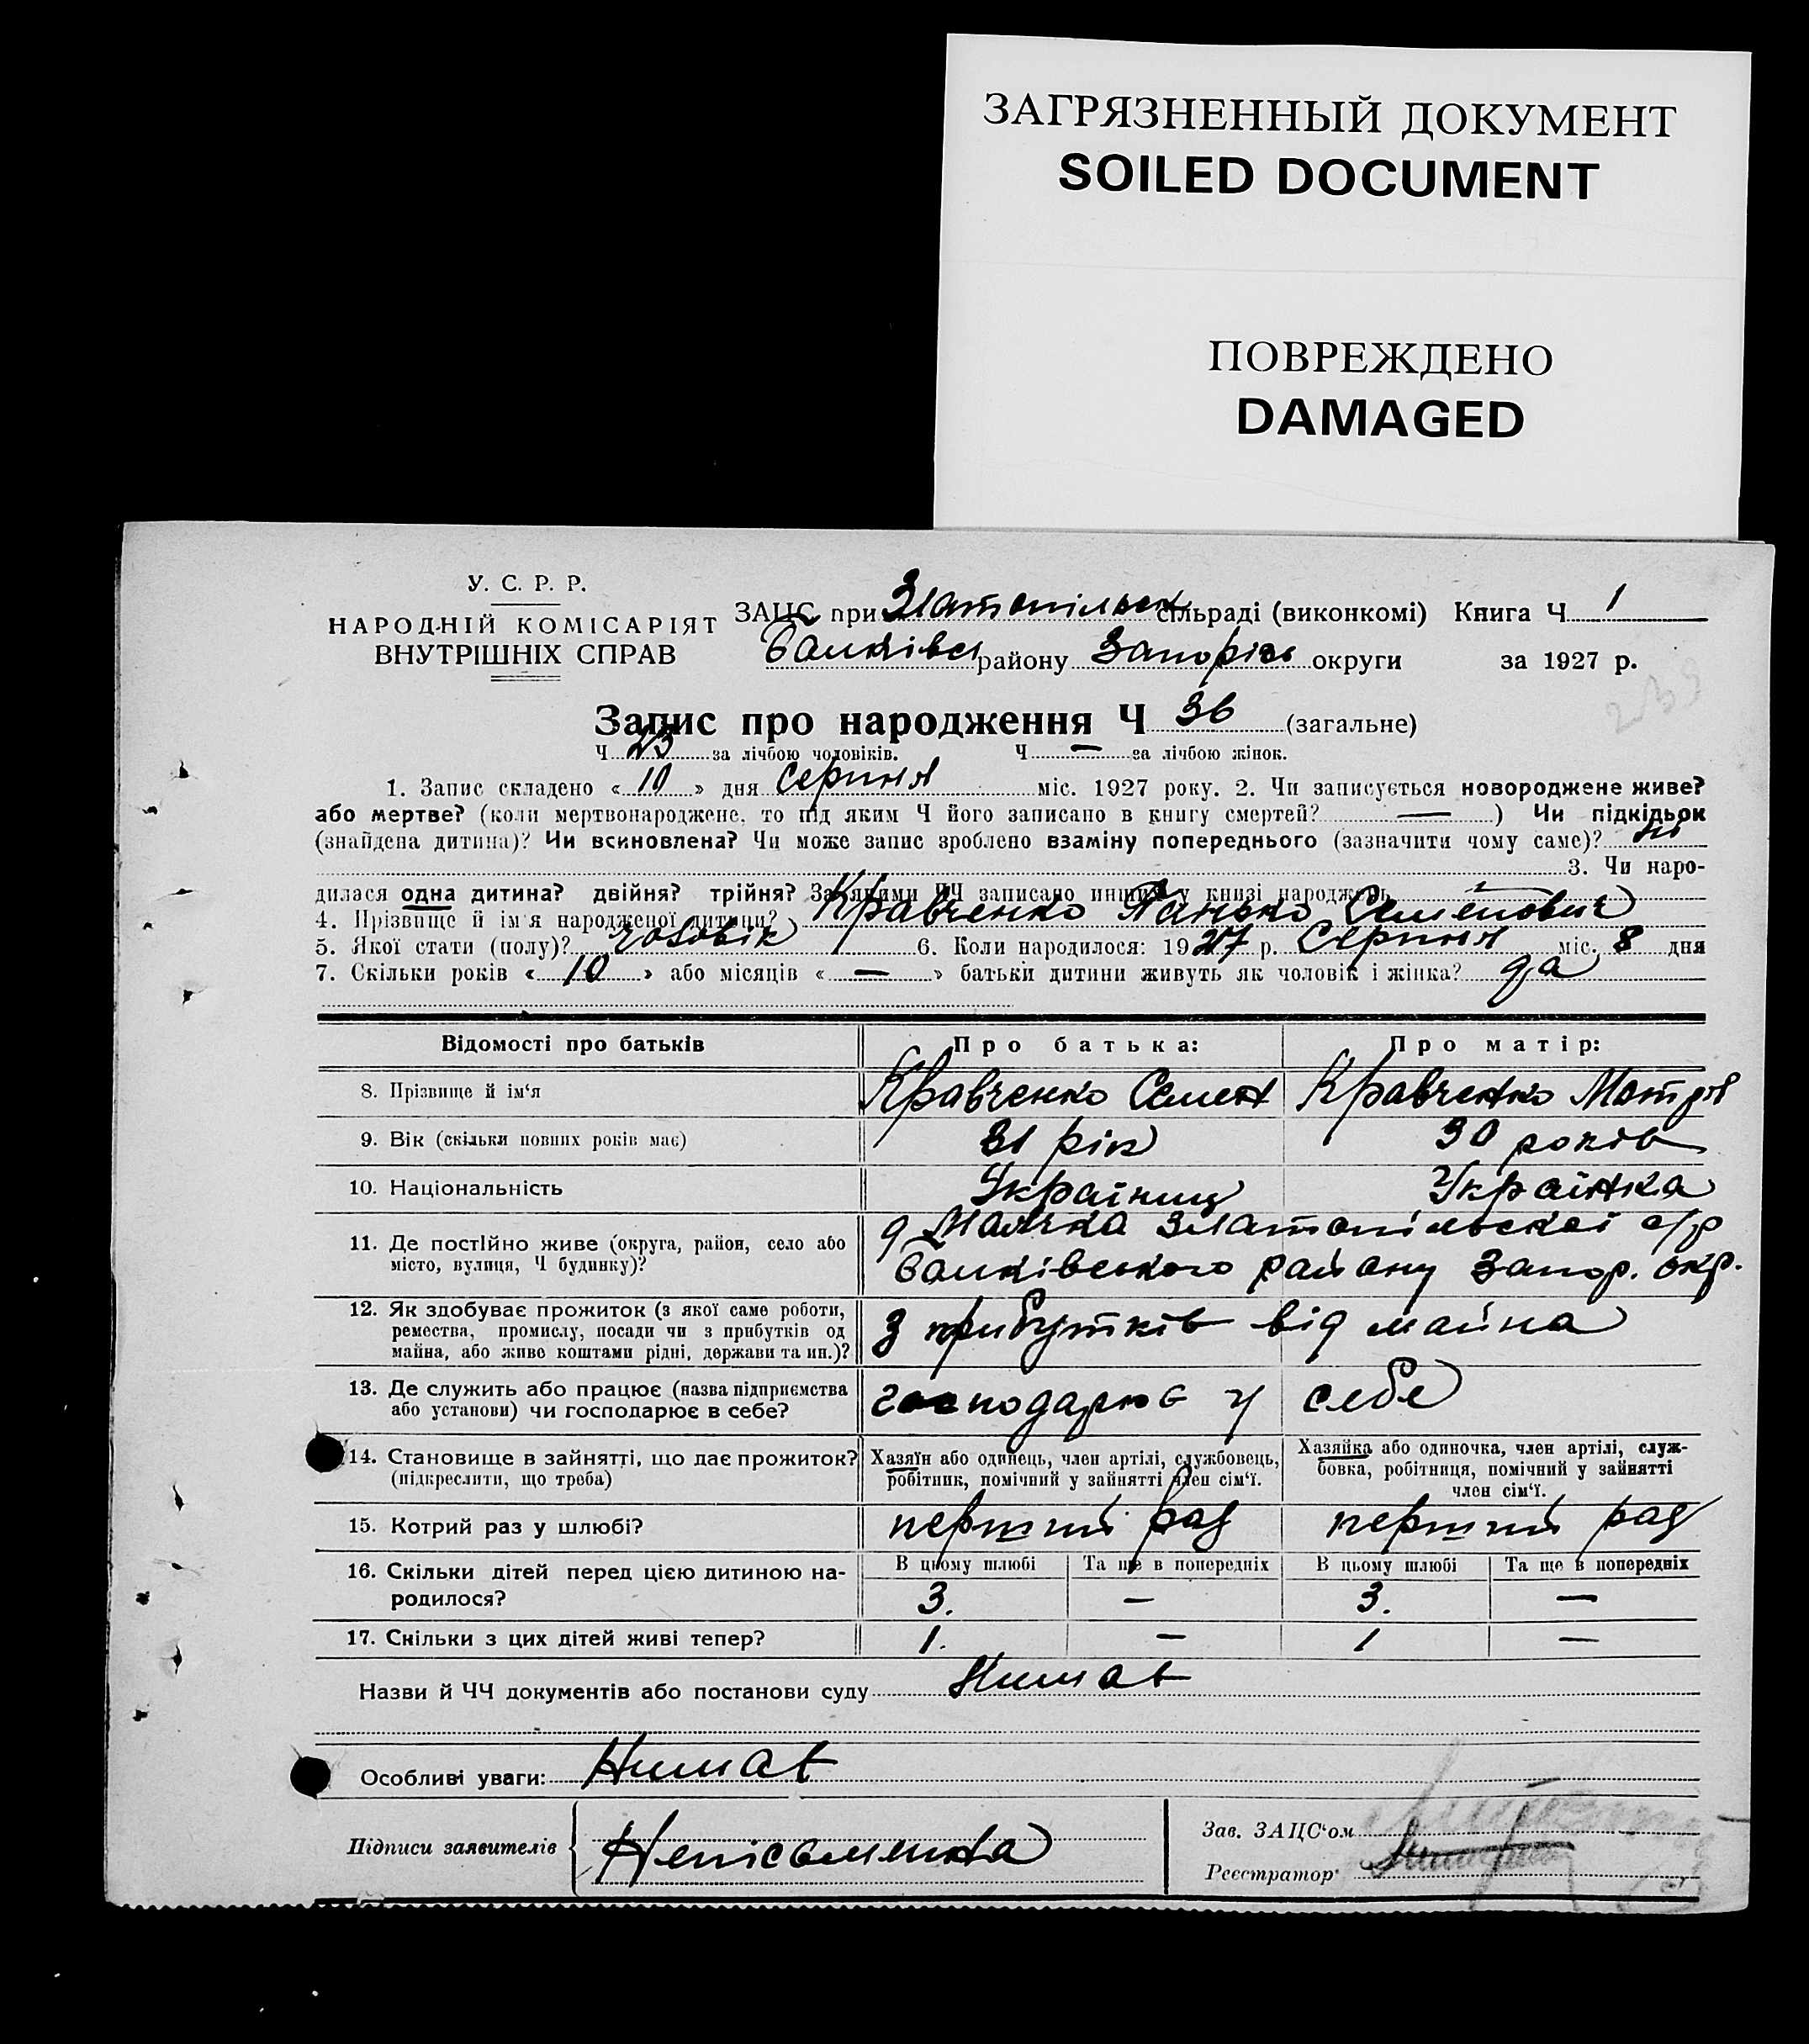 ЗАГРЯЗНЕННЫЙ ДОКУМЕНТ
SOILED DOCUMENT
ПОВРЕЖДЕНО
DAMAGED
У. С. Р. Р.
НАРОДНІЙ КОМІСАРІЯТ
ВНУТРІШНІХ СПРАВ
ЗАЦС при Златопільск сільраді (виконкомі) Книга Ч 1
району Запоріз округи за 1927 р.
Запис про народження Ч 36 (загальне)
Ч 23 за лічбою чоловіків. Ч — за лічбою жінок.
1. Запис складено « 10 » дня Серпня міс. 1927 року. 2. Чи записується новороджене живе?
або мертве? (коли мертвонароджене, то під яким Ч його записано в книгу смертей? — ) Чи підкідьок
(знайдена дитина)? Чи всиновлена? Чи може запис зроблено взаміну попереднього (зазначити чому саме)? ні
3. Чи наро-
дилася одна дитина? двійня? трійня? За якими ЧЧ записано инших у книзі народжень —
4. Прізвище й ім'я народженої дитини? Кравченко Панько Семенович
5. Якої стати (полу)? чоловік 6. Коли народилося: 1927 р. Серпня міс. 8 дня
7. Скільки років « 10 » або місяців « — » батьки дитини живуть як чоловік і жінка? да
Відомості про батьків Про батька: Про матір:
8. Прізвище й ім'я Кравченко Семен Кравченко Мотря
9. Вік (скільки повних років має) 31 рік 30 років
10. Національність Українец Українка
11. Де постійно живе (округа, район, село або
місто, вулиця, Ч будинку)?
д Маячка Златопільскої с/р
району Запор. окр.
12. Як здобуває прожиток (з якої саме роботи,
ремества, промислу, посади чи з прибутків од
майна, або живе коштами рідні, держави та ин.)?
З прибутків від майна
13. Де служить або працює (назва підприємства
або установи) чи господарює в себе?
господарює у себе
14. Становище в зайнятті, що дає прожиток?
(підкреслити, що треба)
Хазяїн або одинець, член артілі, службовець,
робітник, помічний у зайнятті член сім'ї.
Хазяйка або одиночка, член артілі, служ-
бовка, робітниця, помічний у зайнятті
член сім'ї.
15. Котрий раз у шлюбі? перший раз перший раз
16. Скільки дітей перед цією дитиною на-
родилося?
В цьому шлюбі Та ще в попередніх В цьому шлюбі Та ще в попередніх
3. — 3. —
17. Скільки з цих дітей живі тепер? 1. — 1 —
Назви й ЧЧ документів або постанови суду Нимає
Особливі уваги: Нимає
Підписи заявителів Неписьменна
Зав. ЗАЦС'ом
Реєстратор